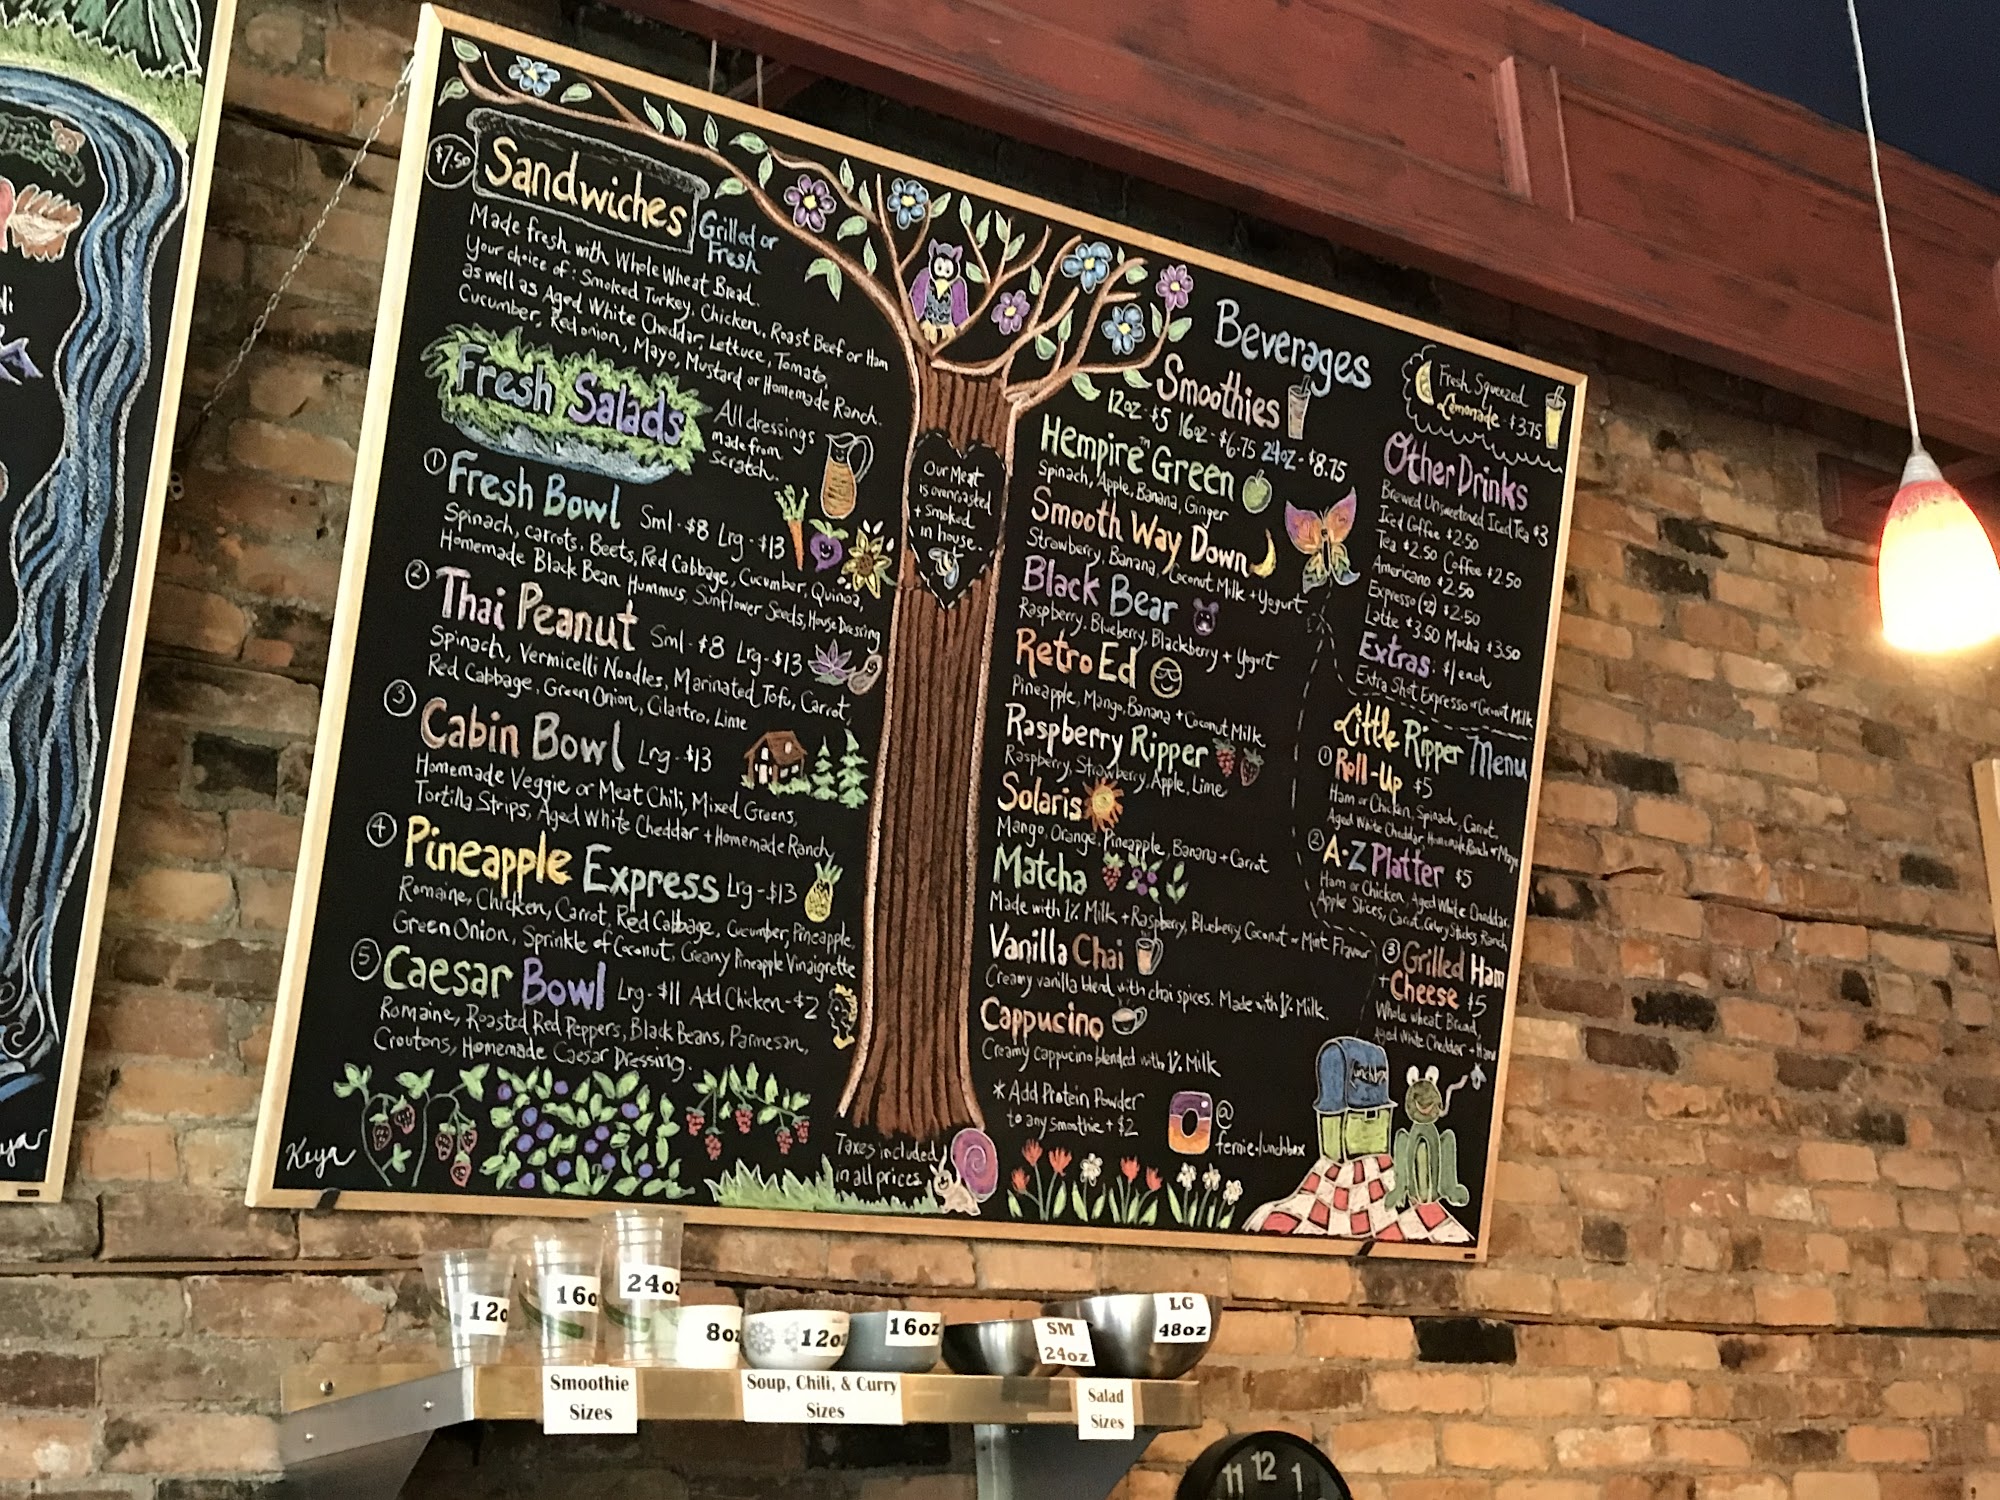 $7.50
Sandwiches
Grilled or
Fresh
Made fresh with Whole Wheat Bread.
Your choice of: Smoked Turkey, Chicken, Roast Beef or Ham
as well as Aged White Cheddar, Lettuce, Tomato,
Cucumber, Red onion, Mayo, Mustard or Homemade Ranch.
Fresh Salads
All dressings
made from
scratch.
1 Fresh Bowl Sml - $8 Lrg - $13
Spinach, carrots, Beets, Red Cabbage, Cucumber, Quinoa,
Homemade Black Bean Hummus, Sunflower Seeds, House Dressing
2 Thai Peanut Sml - $8 Lrg - $13
Spinach, Vermicelli Noodles, Marinated Tofu, Carrot,
Red Cabbage, Green Onion, Cilantro, Lime
3 Cabin Bowl Lrg - $13
Homemade Veggie or Meat Chili, Mixed Greens,
Tortilla Strips, Aged White Cheddar + Homemade Ranch
4 Pineapple Express Lrg - $13
Romaine, Chicken, Carrot, Red Cabbage, Cucumber, Pineapple,
Green Onion, Sprinkle of Coconut, Creamy Pineapple Vinaigrette
5 Caesar Bowl Lrg - $11 Add Chicken - $2
Romaine, Roasted Red Peppers, Black Beans, Parmesan,
Croutons, Homemade Caesar Dressing.
Keya
Our Meat
is overroasted
+ smoked
in house.
Taxes included
in all prices
Beverages
Smoothies
12oz - $5 16oz - $6.75 24oz - $8.75
Hempire™ Green
Spinach, Apple, Banana, Ginger
Smooth Way Down
Strawberry, Banana, Coconut Milk + Yogurt
Black Bear
Raspberry, Blueberry, Blackberry + Yogurt
Retro Ed
Pineapple, Mango, Banana + Coconut Milk
Raspberry Ripper
Raspberry, Strawberry, Apple, Lime
Solaris
Mango, Orange, Pineapple, Banana + Carrot
Matcha
Made with 1% Milk + Raspberry, Blueberry, Coconut or Mint Flavour
Vanilla Chai
Creamy vanilla blend with chai spices. Made with 1% Milk.
Cappucino
Creamy cappucino blended with 1% Milk
* Add Protein Powder
to any smoothie + $2
@
fernie.lunchbox
Fresh Squeezed
Lemonade - $3.75
Other Drinks
Brewed Unsweetened Iced Tea $3
Iced Coffee $2.50
Tea $2.50 Coffee $2.50
Americano $2.50
Expresso (2oz) $2.50
Latte $3.50 Mocha $3.50
Extras: $1 each
Extra Shot Expresso or Coconut Milk
Little Ripper Menu
1 Roll-Up $5
Ham or Chicken, Spinach, Carrot,
Aged White Cheddar, Homemade Ranch or Mayo
2 A-Z Platter $5
Ham or Chicken, Aged White Cheddar,
Apple Slices, Carrot, Celery Sticks, Ranch
3 Grilled Ham
+ Cheese $5
Whole wheat Bread,
Aged White Cheddar + Ham
Lunchbox
12o
16o
24oz
8oz
12oz
16oz
SM
24oz
LG
48oz
Smoothie
Sizes
Soup, Chili, & Curry
Sizes
Salad
Sizes
11 12 1